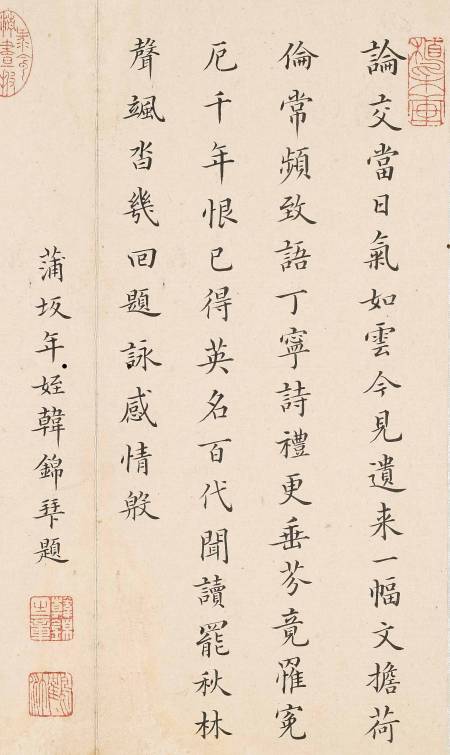 論交當日氣如雲今見遺来一幅文擔荷
倫常頻致語丁寧詩禮更垂芬竟罹冤
厄千年恨已得英名百代聞讀罷秋林
聲颯沓幾回題詠感情殷
蒲坂年姪韓錦題